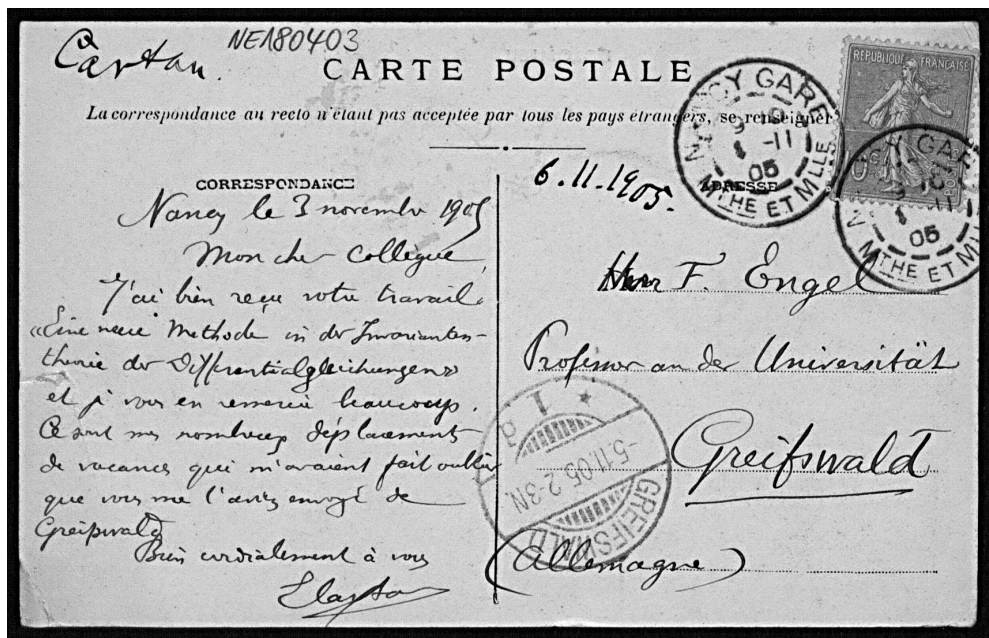 Cartan.
NE180403
CARTE POSTALE
La correspondance au recto n'étant pas acceptée par tous les pays étrangers, se renseigner
RÉPUBLIQUE FRANÇAISE
NANCY GARE
-11
05
MTHE ET MLLE
NANCY GARE
-11
05
MTHE ET MLLE
CORRESPONDANCE
Nancy le 3 novembre 1905
Mon cher Collègue,
J'ai bien reçu votre travail
«Eine neue Methode in der Invarianten-
theorie der Differentialgleichungen»
et je vous en remercie beaucoup.
Ce sont mes nombreux déplacements
de vacances qui m'avaient fait oublier
que vous me l'aviez envoyé de
Greifswald
Bien cordialement à vous
E Cartan
6.11.1905.
ADRESSE
Herr F. Engel
Professor an der Universität
Greifswald
(Allemagne)
GREIFSWALD
-5.11.05.2-3N
* 1